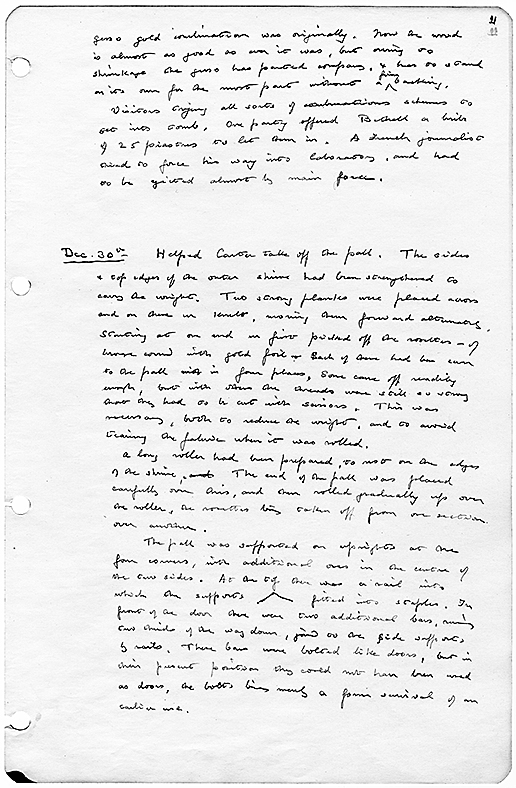 21
gesso gold combination was originally. Now the wood
is almost as good as ever it was, but owing to
shrinkage the gesso has parted company, & has to stand
on its own for the most part without firm backing.
Visitors trying all sorts of schemes to
get into tomb. One party offered Bethell a bribe
of 25 piastres to let them in. A French journalist
tried to force his way into laboratory, and had
to be ejected almost by main force.
Dec. 30th Helped Carter take off the pall. The sides
& top edges of the outer shrine had been strengthened to
carry the weight. Two strong planks were placed across
and on these we knelt, moving them forward alternately.
Starting at one end we first picked off the rosettes – of
bronze covered with gold foil. Each of these had been sewn
to the pall in four places. Some came off readily
enough, but with others the threads were still so strong
that they had to be cut with scissors. This was
necessary, both to reduce the weight, and to avoid
tearing the fabric when it was rolled.
A long roller had been prepared, to rest on the edges
of the shrine, The end of the pall was placed
carefully over this, and then rolled gradually up over
the roller, the rosettes being taken off from one section
after another.
The pall was supported on uprights at the
four corners, with additional ones in the centre of
the two sides. At the top there was a rail into
which the supports fitted into staples. In
front of the door there were two additional bars,
two thirds of the way down, joined to the side supports
by rails. These bars were bolted like doors, but in
their present position they could not have been used
as doors, the bolts being merely a survival of an
earlier use.